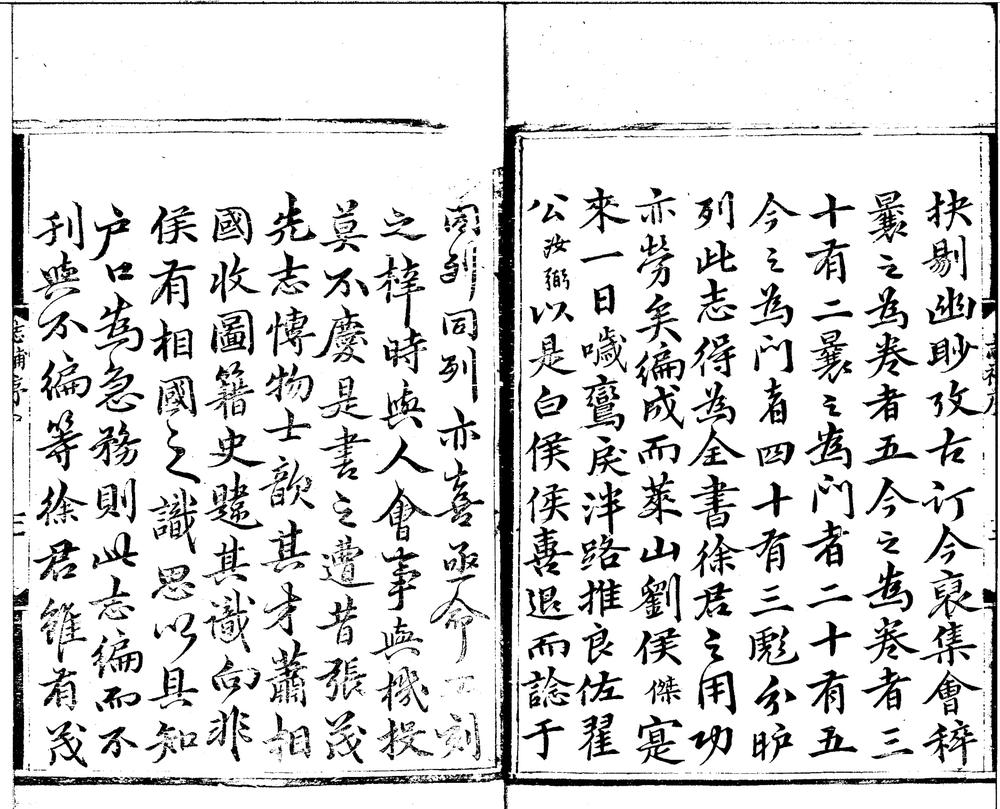 抉剔幽眇攷古订今裒集會稡
曩之為卷者五今之為卷者三
十有二曩之為门者二十有五
今之為门者四十有三彪分胪
列此志得為全書徐君之用功
亦勞矣編成而萊山劉侯傑寔
來一日噦鸞戾泮路推良佐翟
公汝弼以是白侯侯喜退而諗于
同列同列亦喜亟命工刻
之梓時與人會事與機投
莫不慶是書之遭昔張茂
先志愽物士歆其才蕭相
國收圖籍史韙其識向非
侯有相國之識思以具知
户口為急務則此志編而不
刊與不編等徐君雖有茂
志補序